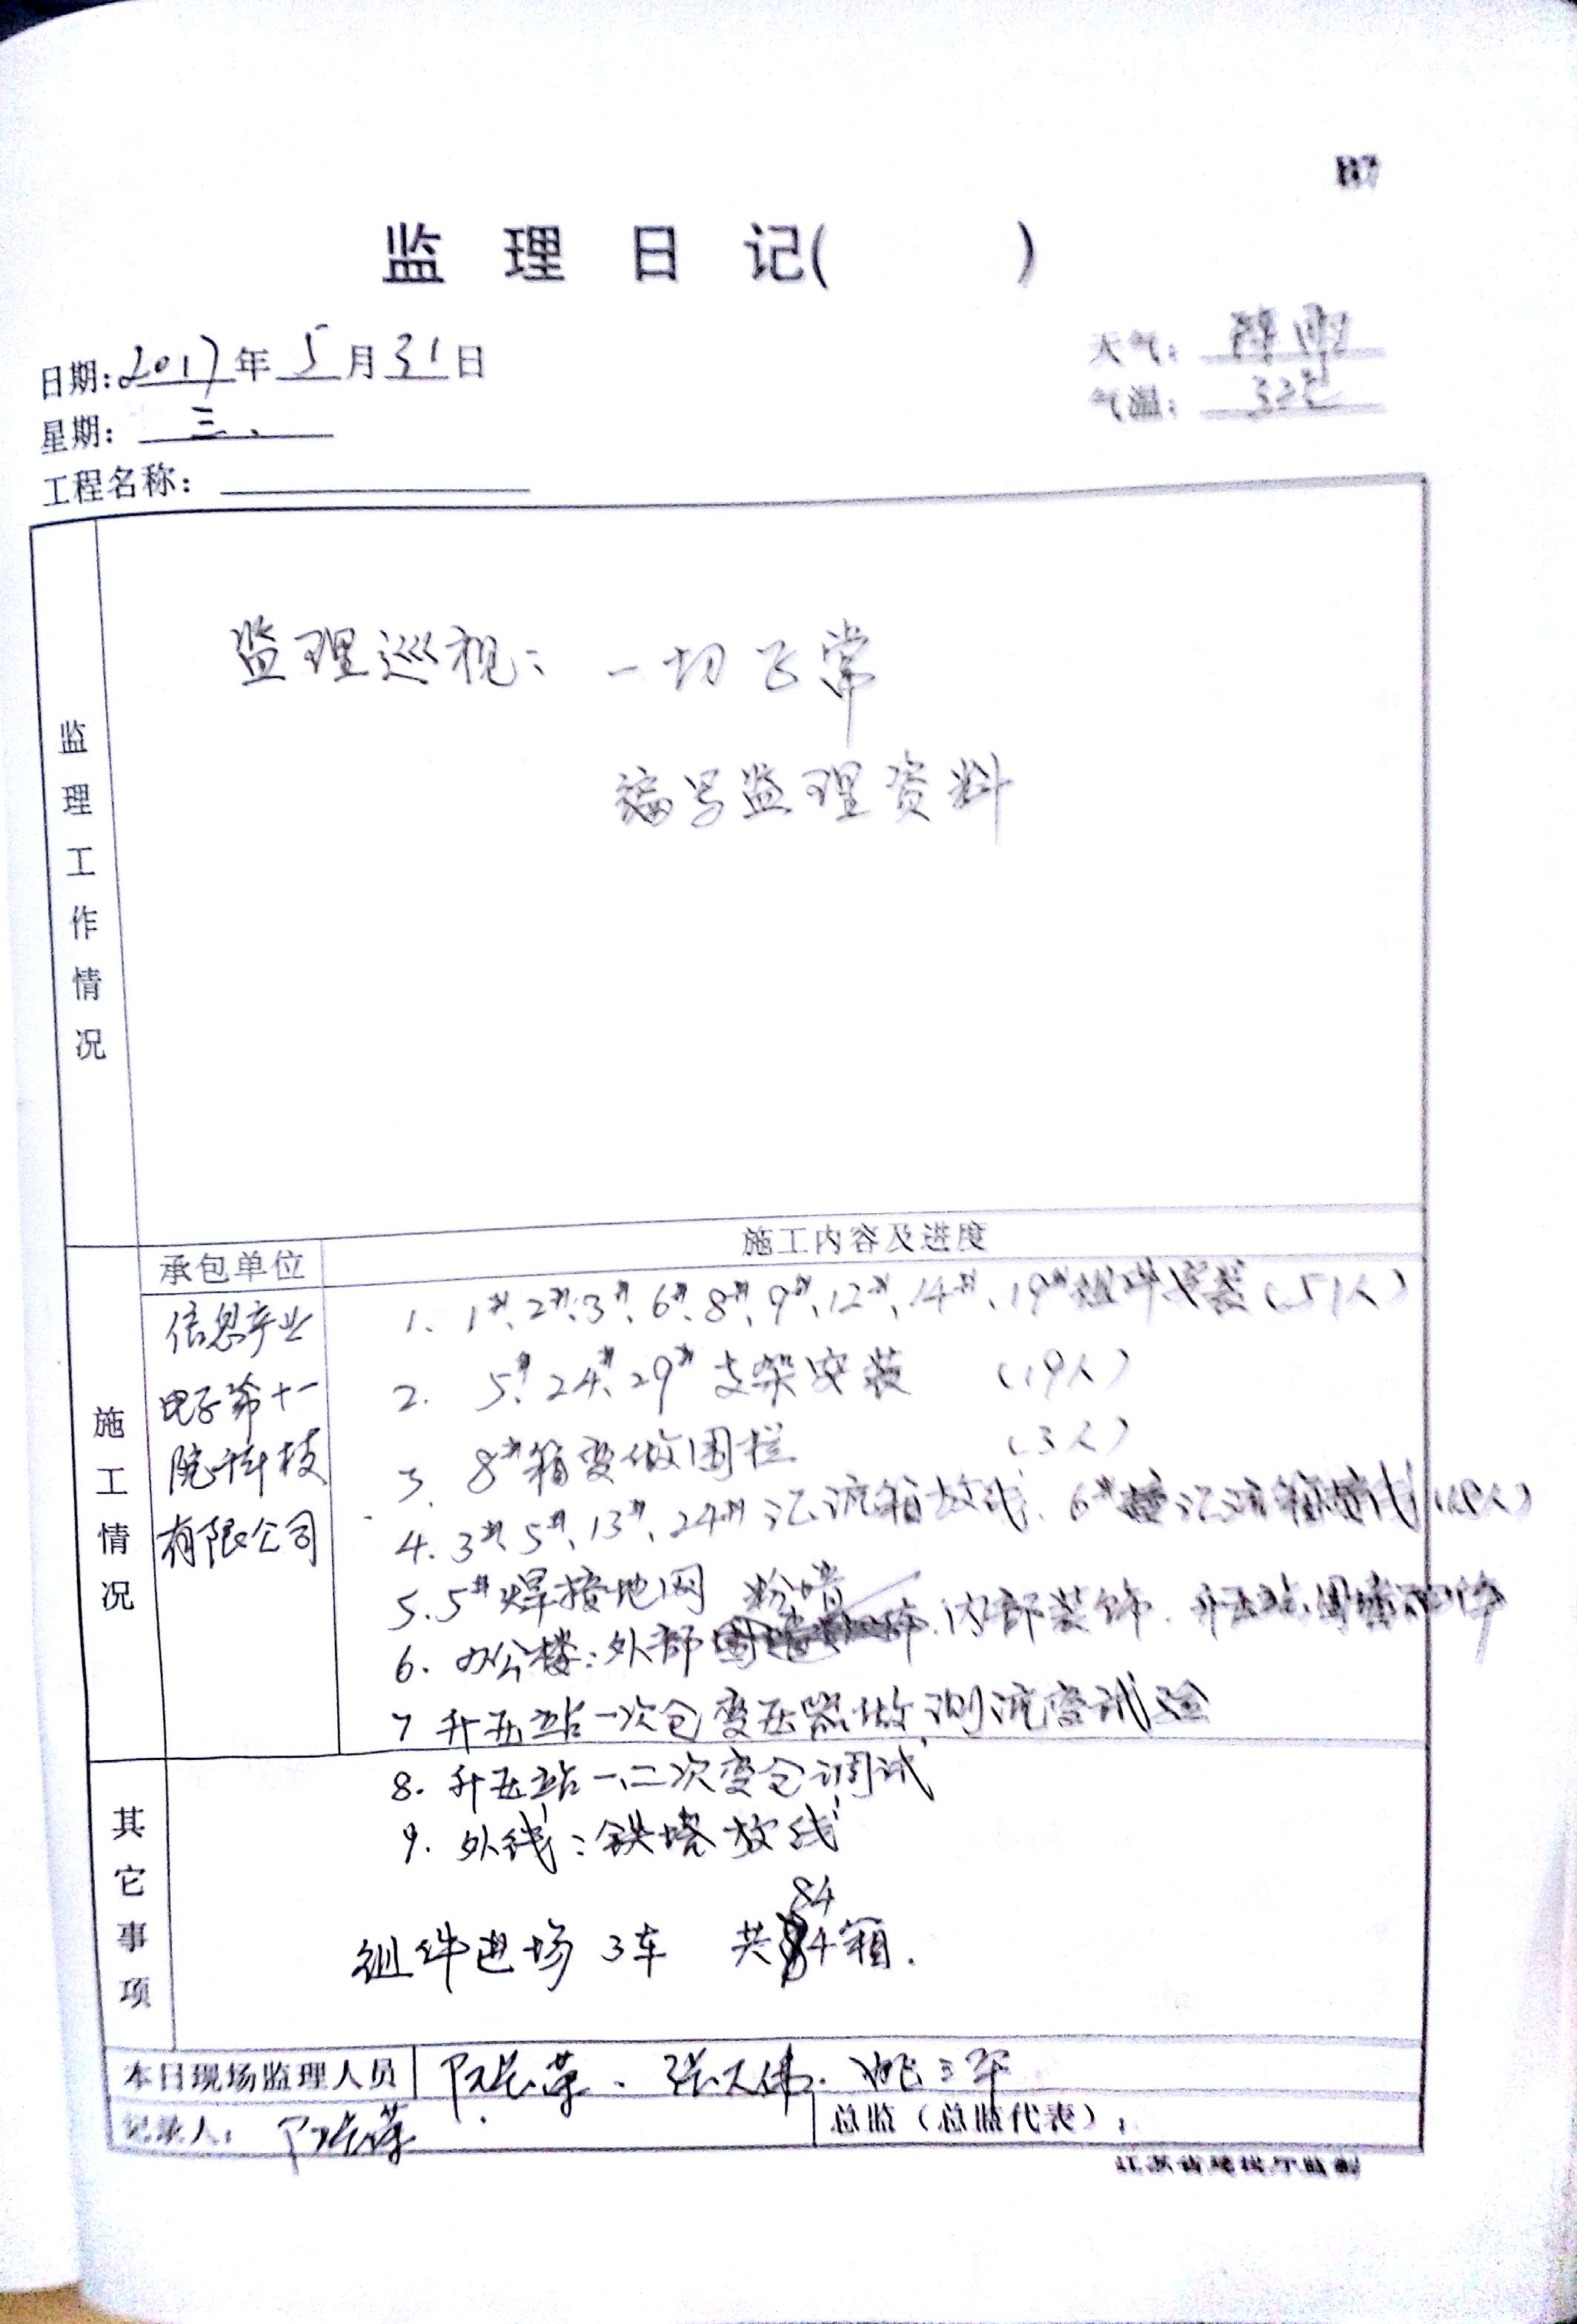 B7
监 理 日 记( )
日期:2017年5月31日
天气: 阵雨
星期: 三、
气温: 32℃
工程名称:
监理工作情况
监理巡视: 一切正常
编写监理资料
施工情况
承包单位
施工内容及进度
信息产业
电子第十一
院科技
有限公司
1、1#、2#、3#、6#、8#、9#、12#、14#、19#组件安装(51人)
2. 5#、24#、29#支架安装 (19人)
3. 8#箱变做围栏 (3人)
4. 3#、5#、13#、24#汇流箱放线、6#汇流箱
5. 5#焊接地网 粉墙
6. 办公楼:外部 内部装饰. 升压站围墙
7 升压站一次仓变压器做测流变试验
8. 升压站一、二次变仓调试
9. 外线:铁塔放线
其它事项
84
组件进场 3车 共 4箱.
本日现场监理人员
记录人:
总监(总监代表):